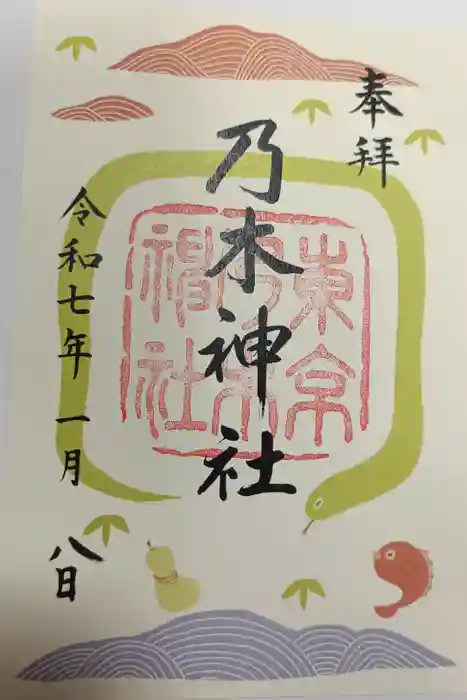 奉拝
乃木神社
東京
乃木
神社
令和七年一月八日